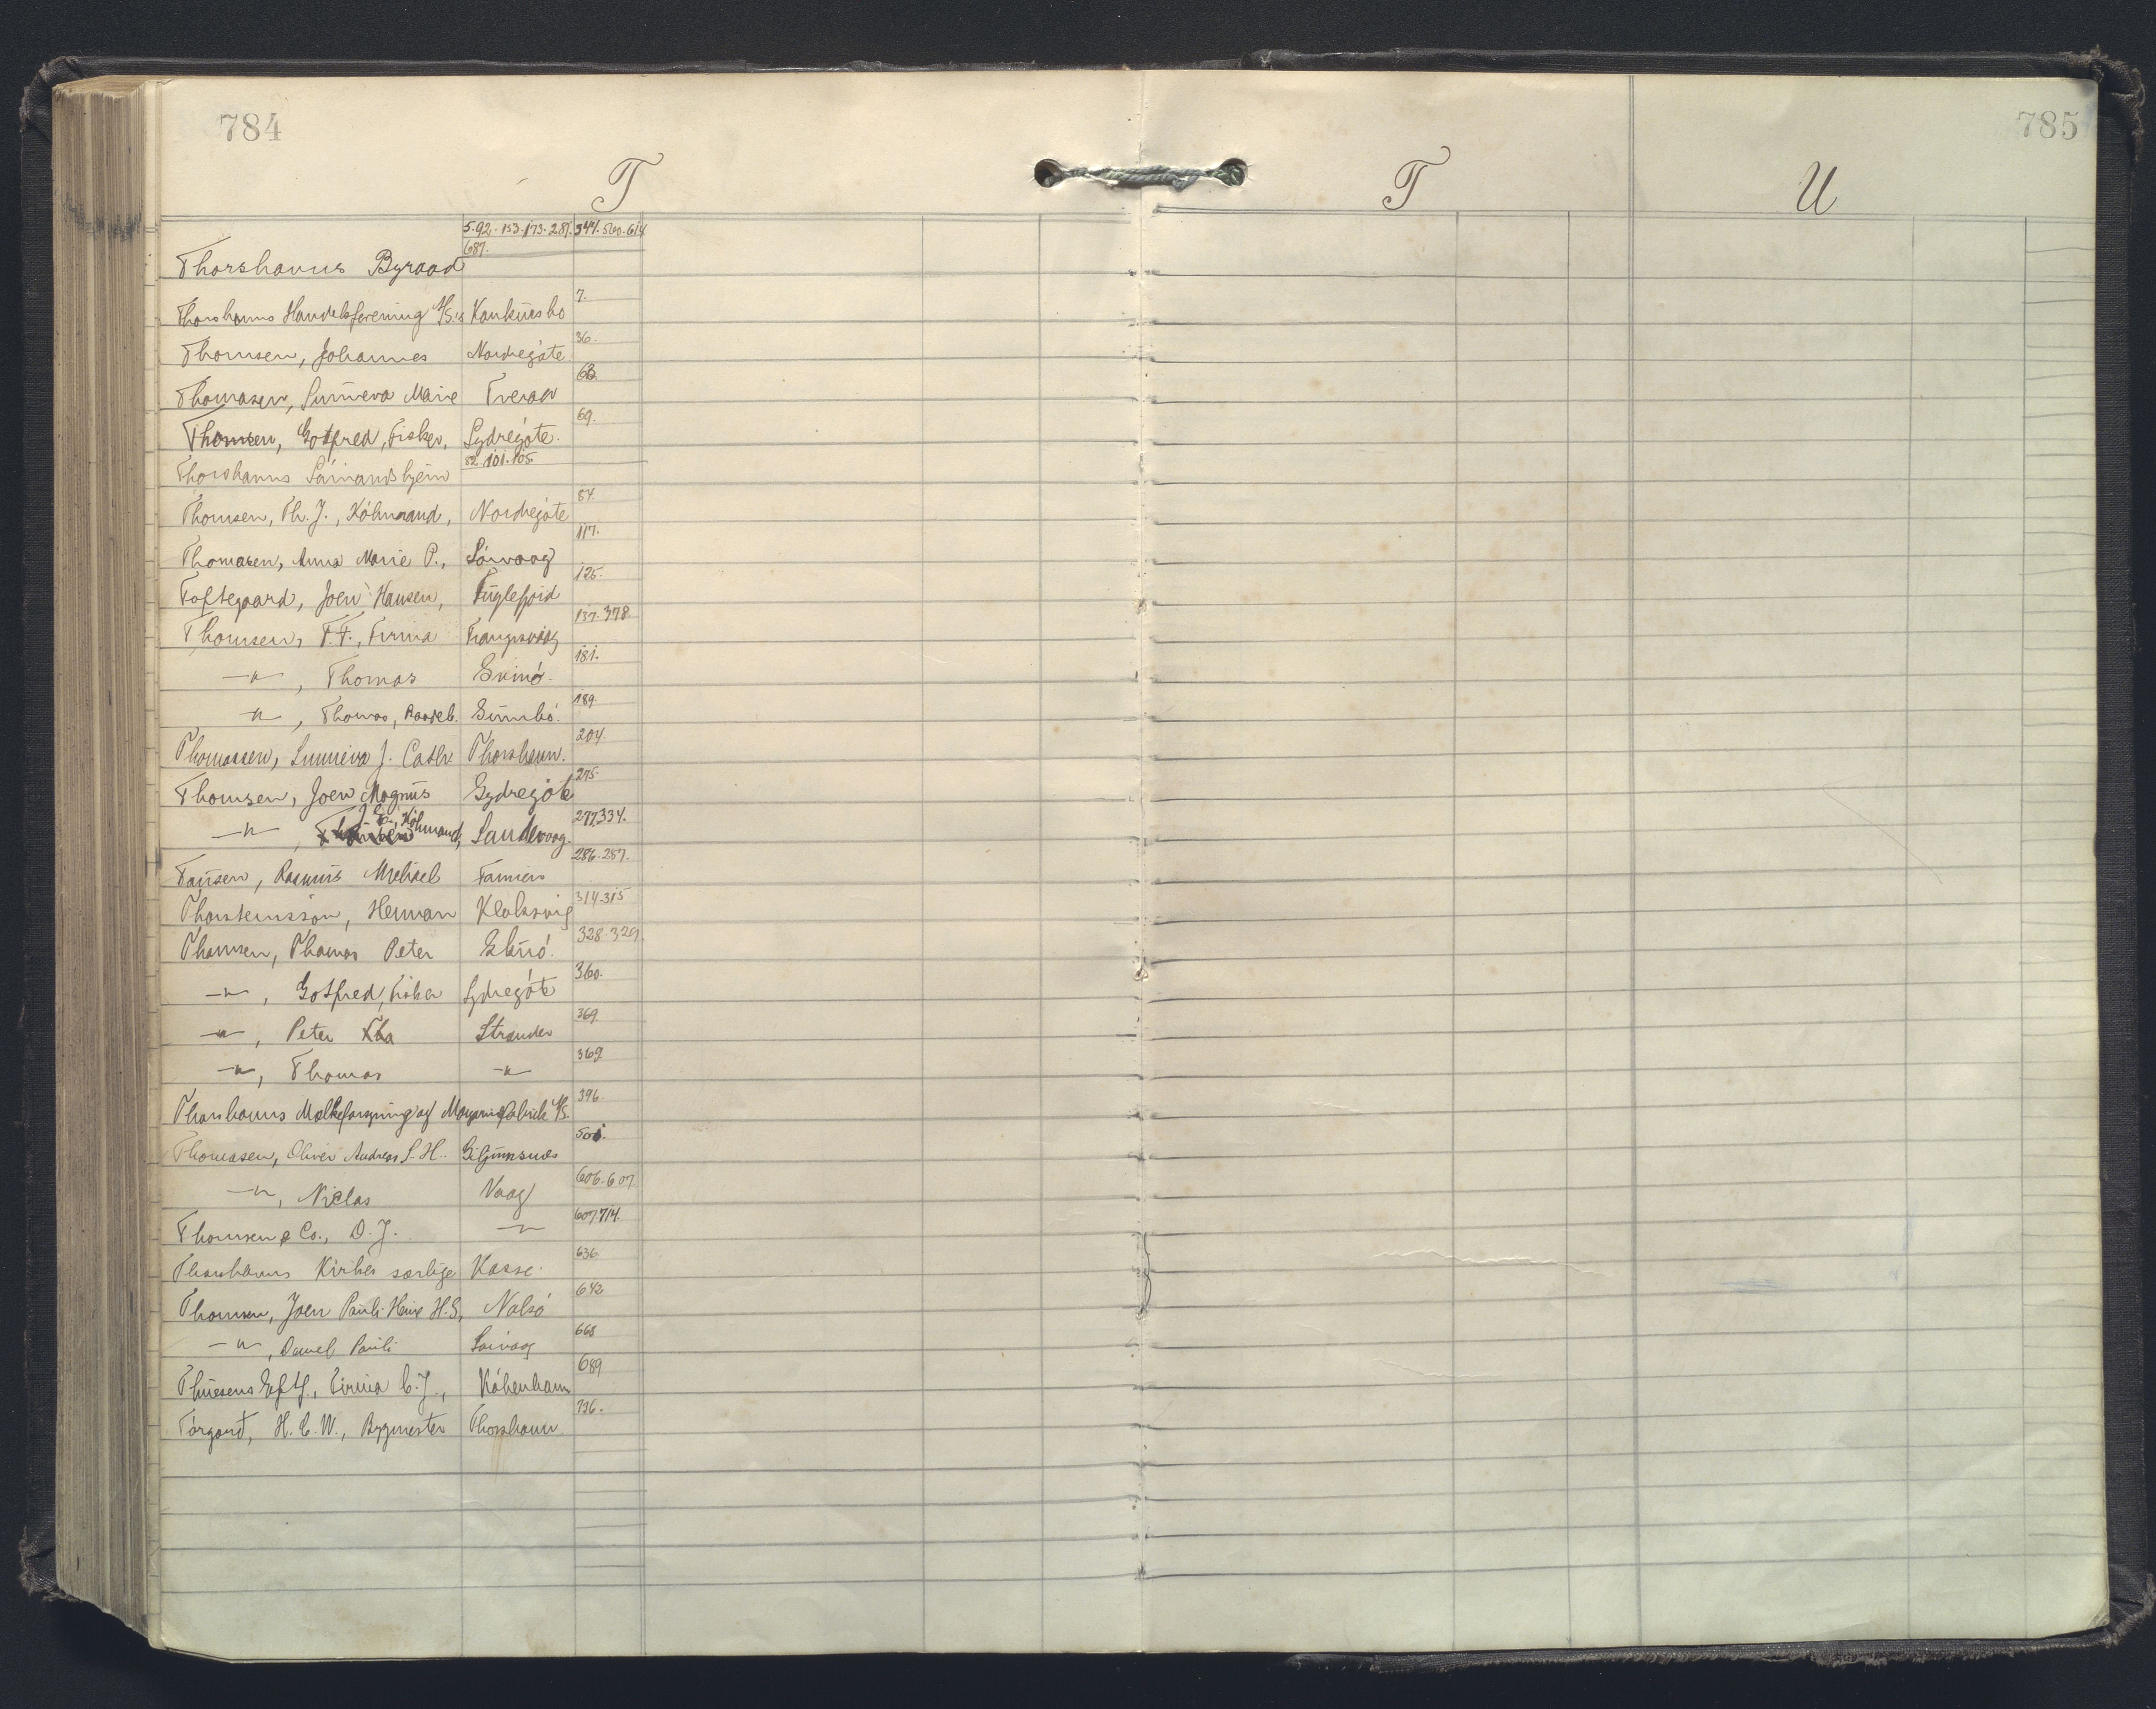 784
785
T
T
U
5. 92. 153. 173. 287. 344. 560. 614
687.
Thorshavns Byraad
Thorshavns Handelsforening A/S's Konkursbo 7.
Thomsen, Johannes Nordregöte 36.
Thomasen, Sunneva Marie Tveraa 63.
Thomsen, Gotfred, Fisker, Sydregöte. 69.
Thorshavns Sömandshjem 82. 101. 105.
Thomsen, Th. J., Köbmand, Nordregöte 84.
Thomasen, Anna Marie P., Sörvaag 117.
Toftegaard, Joen Hansen, Fuglefjord 125.
Thomsen, T. F., Firma Trangisvaag 137. 378.
—"—, Thomas Svinö. 181.
—"—, Thomas, Sumbö. 189
Thomassen, Sunneva J. Cathr Thorshavn. 204.
Thomsen, Joen Magnus Sydregöte 275.
—"—, Köbmand, Sandevaag. 277. 334.
Tausen, Rasmus Michael Famien 286. 287.
Thorsteinsson, Herman Klaksvig 314. 315
Thomsen, Thomas Peter Skuö. 328. 329.
—"—, Gotfred, Fisker Sydregöte 360.
—"—, Peter Strander 369.
—"—, Thomas —"— 369
Thorshavns Mælkeforsyning og Margarinefabrik A/S. 396.
Thomasen, Oliver Andreas S. H. Giljumsnes 501.
—"—, Niclas Vaag 606. 607.
Thomsen & Co., D. J. —"— 607. 714.
Thorshavns Kirkes særlige Kasse. 636.
Thomsen, Joen Pauli Heine H. S., Nolsö 642
—"—, Daniel Pauli Sörvaag 668
Thuesens Eftf., Firma C. J., Köbenhavn 689
Törgard, H. C. W., Bygmester Thorshavn 736.